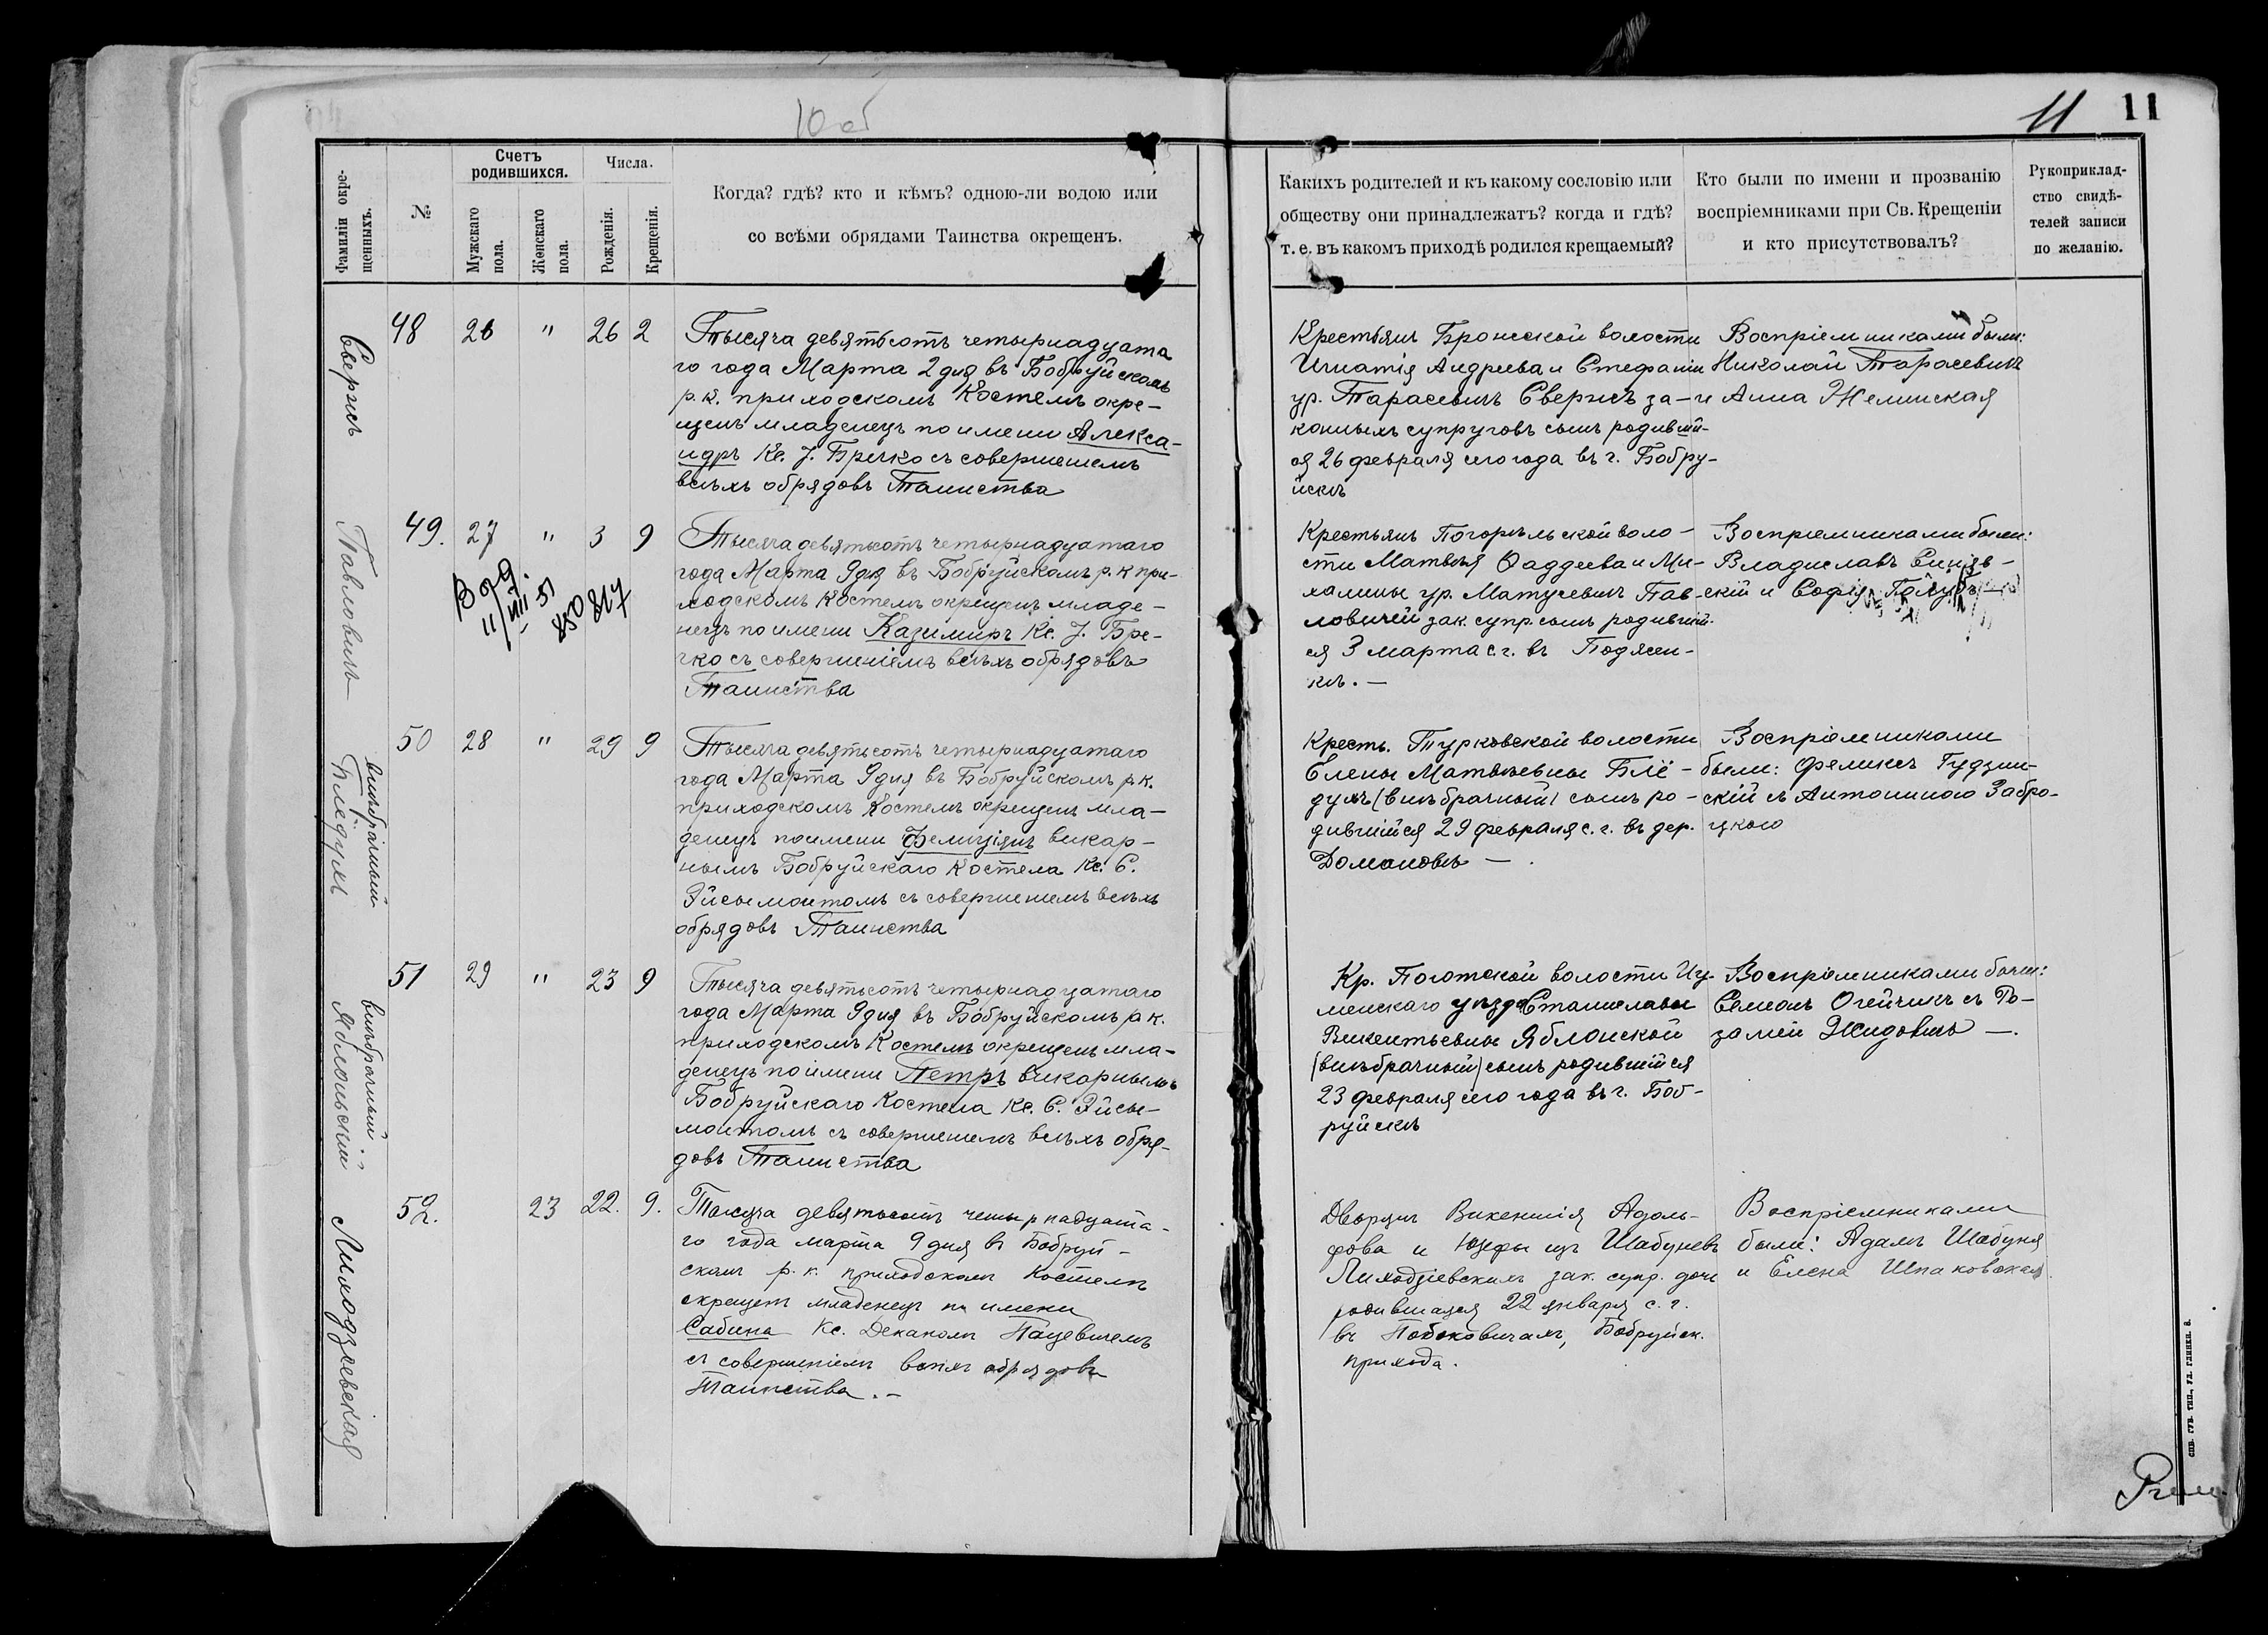 10 об
11 11
Фамиліи окрещенныхъ.
№
Счетъ родившихся.
Мужскаго пола.
Женскаго пола.
Числа.
Рожденія.
Крещенія.
Когда? гдѣ? кто и кѣмъ? одною-ли водою или
со всѣми обрядами Таинства окрещенъ.
Какихъ родителей и къ какому сословію или
обществу они принадлежатъ? когда и гдѣ?
т. е. въ какомъ приходѣ родился крещаемый?
Кто были по имени и прозванію
воспріемниками при Св. Крещеніи
и кто присутствовалъ?
Рукоприклад-
ство свидѣ-
телей записи
по желанію.
Свернсъ
48 26 " 26 2
Тысяча девятьсотъ четырнадцата
го года Марта 2 дня въ Бобруйскомъ
р. к. приходскомъ Костелѣ окре-
щенъ младенецъ по имени Алекса-
ндръ Кс. J. Бречко съ совершенiемъ
всѣхъ обрядовъ Таинства
Крестьянъ Бронской волости
Игнатія Андреева и Стефаніи
ур. Тарасевичъ Свернсъ за-
конныхъ супруговъ сынъ родивший-
ся 26 февраля сего года въ г. Бобру-
йскѣ
Воспріемниками были:
Николай Тарасевичъ
и Анна Жеминская
Павловичъ
49. 27 " 3 9
850 817
Тысяча девятьсотъ четырнадцатаго
года Марта 9 дня въ Бобруйскомъ р. к при-
ходскомъ Костелѣ окрещенъ младе-
нецъ по имени Казимиръ Кс. J. Бре-
чко съ совершеніемъ всѣхъ обрядовъ
Таинства
Крестьянъ Погорѣльской воло-
сти Матвѣя Фаддеева и Ми-
халины ур. Матусевичъ Пав-
ловичей зак. супр. сынъ родивший-
ся 3 марта с. г. въ Подясен-
кѣ. —
Воспріемниками были:
Владиславъ Синяв-
скій и Софія Голубъ
внѣбрачный
Бледухъ
50 28 " 29 9
Тысяча девятьсотъ четырнадцатаго
года Марта 9 дня въ Бобруйскомъ р. к.
приходскомъ Костелѣ окрещенъ мла-
денецъ по имени Фелиціянъ викар-
нымъ Бобруйскаго Костела Кс. С.
Эйсымонтомъ съ совершенiемъ всѣхъ
обрядовъ Таинства
Кресть. Турковской волости
Елены Матвѣевны Блё-
духъ (внѣбрачный) сынъ ро-
дившійся 29 февраля с. г. въ дер.
Домановѣ —.
Воспріемниками
были: Феликсъ Гудзин-
скій съ Антониною Забро-
цкою
внѣбрачный
Яблонскій
51 29 " 23 9
Тысяча девятьсотъ четырнадцатаго
года Марта 9 дня въ Бобруйскомъ р. к.
приходскомъ Костелѣ окрещенъ мла-
денецъ по имени Петръ викарнымъ
Бобруйскаго Костела Кс. С. Эйсы-
монтомъ съ совершенiемъ всѣхъ обря-
довъ Таинства
Кр. Поготской волости Игу-
менскаго уѣзда Станиславы
Викентьевны Яблонской
(внѣбрачный) сынъ родившійся
23 февраля сего года въ г. Боб-
руйскѣ
Воспріемниками были:
Семіонъ Огейчикъ съ Ро-
заліей Жидовичъ —.
Лиходзіевская
52. 23 22. 9.
Тысяча девятьсотъ четырнадцата-
го года марта 9 дня въ Бобруй-
скомъ р. к. приходскомъ Костелѣ
окрещенъ младенецъ по имени
Сабина Кс. Деканомъ Пацевичемъ
съ совершеніемъ всѣхъ обрядовъ
Таинства. —
Дворянъ Викентія Адоль-
фова и Юзефы изъ Шабуневъ
Лиходзіевскихъ зак. супр. дочь
родившаяся 22 января с. г.
въ Побоковичахъ, Бобруйск.
прихода.
Воспріемниками
были: Адамъ Шабуня
и Елена Шпаковская.
СПБ. ГУБ. ТИП., УЛ. ГЛИНКИ. 8.